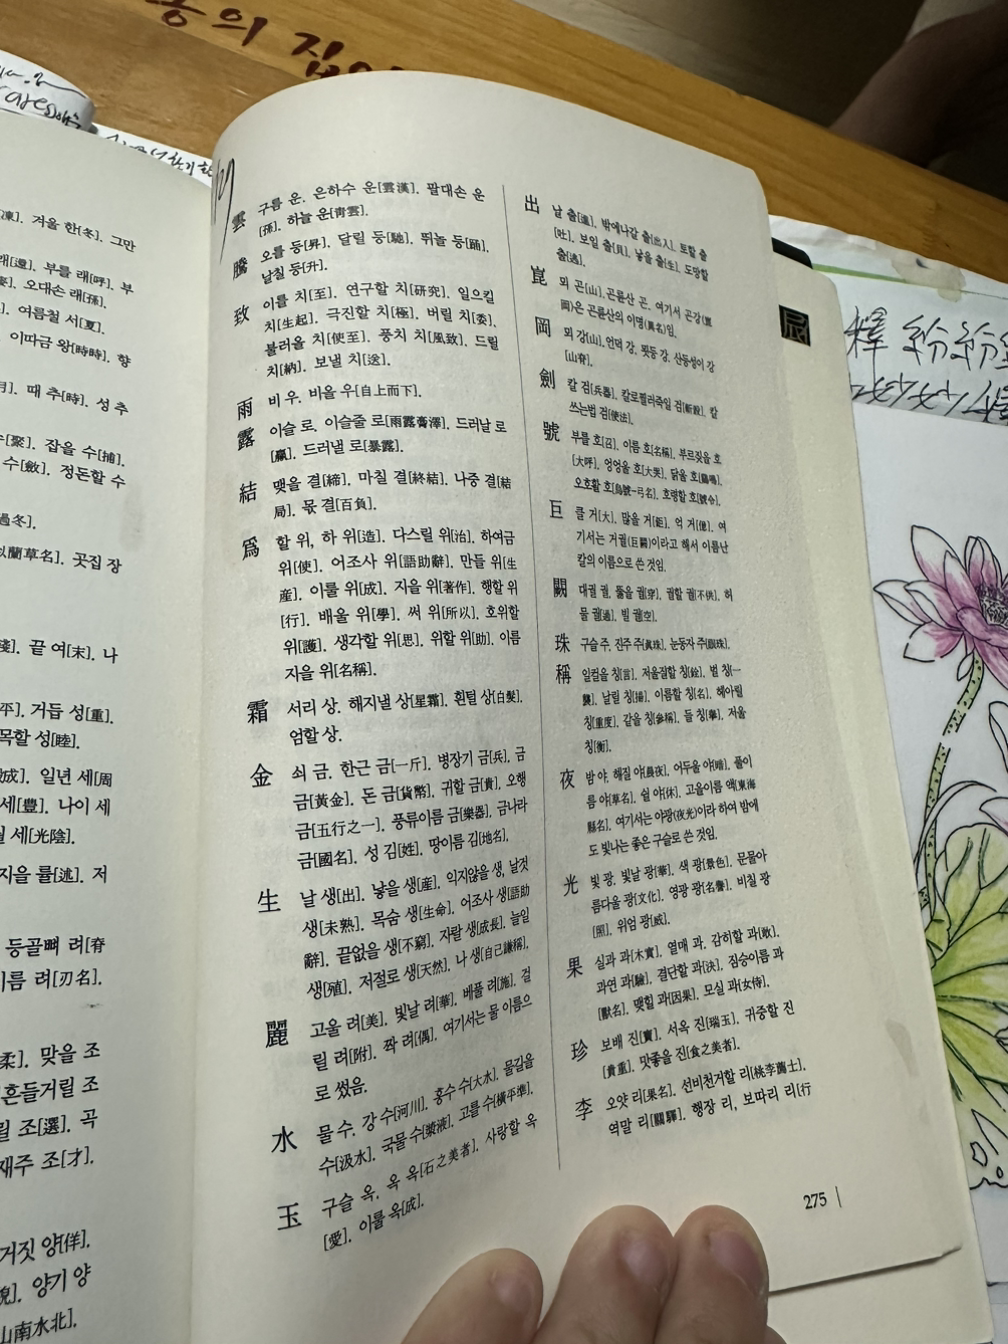 동의 집
凍]. 겨울 한[冬]. 그만
래[還]. 부를 래[呼]. 부
오대손 래[孫].
여름철 서[夏].
이따금 왕[時時]. 향
때 추[時]. 성 추
[聚]. 잡을 수[捕].
수[斂]. 정돈할 수
過冬].
似蘭草名]. 곳집 장
끝 여[末]. 나
平]. 거듭 성[重].
목할 성[睦].
成]. 일년 세[周
세[豊]. 나이 세
세[光陰].
지을 률[述]. 저
등골뼈 려[脊
이름 려[刃名].
柔]. 맞을 조
흔들거릴 조
릴 조[選]. 곡
재주 조[才].
거짓 양[佯].
양기 양
山南水北].
雲 구름 운. 은하수 운[雲漢]. 팔대손 운
[孫]. 하늘 운[靑雲].
騰 오를 등[昇]. 달릴 등[馳]. 뛰놀 등[踊].
날칠 등[升].
致 이를 치[至]. 연구할 치[硏究]. 일으킬
치[生起]. 극진할 치[極]. 버릴 치[委].
불러올 치[使至]. 풍치 치[風致]. 드릴
치[納]. 보낼 치[送].
雨 비 우. 비올 우[自上而下].
露 이슬 로. 이슬줄 로[雨露膏澤]. 드러날 로
[羸]. 드러낼 로[暴露].
結 맺을 결[締]. 마칠 결[終結]. 나중 결[結
局]. 몫 결[百負].
爲 할 위, 하 위[造]. 다스릴 위[治]. 하여금
위[使]. 어조사 위[語助辭]. 만들 위[生
産]. 이룰 위[成]. 지을 위[著作]. 행할 위
[行]. 배울 위[學]. 써 위[所以]. 호위할
위[護]. 생각할 위[思]. 위할 위[助]. 이름
지을 위[名稱].
霜 서리 상. 해지낼 상[星霜]. 흰털 상[白髮].
엄할 상.
金 쇠 금. 한근 금[一斤]. 병장기 금[兵]. 금
금[黃金]. 돈 금[貨幣]. 귀할 금[貴]. 오행
금[五行之一]. 풍류이름 금[樂器]. 금나라
금[國名]. 성 김[姓]. 땅이름 김[地名].
生 날 생[出]. 낳을 생[産]. 익지않을 생, 날것
생[未熟]. 목숨 생[生命]. 어조사 생[語助
辭]. 끝없을 생[不窮]. 자랄 생[成長]. 늘일
생[殖]. 저절로 생[天然]. 나 생[自己謙稱].
麗 고울 려[美]. 빛날 려[華]. 베풀 려[施]. 걸
릴 려[附]. 짝 려[偶]. 여기서는 물 이름으
로 썼음.
水 물 수. 강 수[河川]. 홍수 수[大水]. 물길을
수[汲水]. 국물 수[漿液]. 고를 수[橫平準].
玉 구슬 옥. 옥 옥[石之美者]. 사랑할 옥
[愛]. 이룰 옥[成].
出 날 출[進]. 밖에나갈 출[出入]. 토할 출
[吐]. 보일 출[見]. 낳을 출[生]. 도망할
출[逃].
崑 뫼 곤[山]. 곤륜산 곤. 여기서 곤강(崑
岡)은 곤륜산의 이명(異名)임.
岡 뫼 강[山]. 언덕 강. 묏등 강. 산등성이 강
[山脊].
劍 칼 검[兵器]. 칼로찔러죽일 검[斬殺]. 칼
쓰는법 검[使法].
號 부를 호[召]. 이름 호[名稱]. 부르짖을 호
[大呼]. 엉엉울 호[大哭]. 닭울 호[鷄鳴].
오호활 호[烏號-弓名]. 호령할 호[號令].
巨 클 거[大]. 많을 거[鉅]. 억 거[億]. 여
기서는 거궐(巨闕)이라고 해서 이름난
칼의 이름으로 쓴 것임.
闕 대궐 궐. 뚫을 궐[穿]. 궐할 궐[不供]. 허
물 궐[過]. 빌 궐[空].
珠 구슬 주, 진주 주[眞珠]. 눈동자 주[眼珠].
稱 일컬을 칭[言]. 저울질할 칭[銓]. 벌 칭[一
襲]. 날릴 칭[揚]. 이름할 칭[名]. 헤아릴
칭[重度]. 같을 칭[參稱]. 들 칭[擧]. 저울
칭[衡].
夜 밤 야. 해질 야[暮夜]. 어두울 야[暗]. 풀이
름 야[草名]. 쉴 야[休]. 고을이름 액[東海
縣名]. 여기서는 야광(夜光)이라 하여 밤에
도 빛나는 좋은 구슬로 쓴 것임.
光 빛 광. 빛날 광[華]. 색 광[景色]. 문물아
름다울 광[文化]. 영광 광[名譽]. 비칠 광
[照]. 위엄 광[威].
果 실과 과[木實]. 열매 과. 감히할 과[敢].
과연 과[驗]. 결단할 과[決]. 짐승이름 과
[獸名]. 맺힐 과[因果]. 모실 과[女侍].
珍 보배 진[寶]. 서옥 진[瑞玉]. 귀중할 진
[貴重]. 맛좋을 진[食之美者].
李 오얏 리[果名]. 선비천거할 리[桃李薦士].
역말 리[關驛]. 행장 리, 보따리 리[行
275
辰
釋 紛